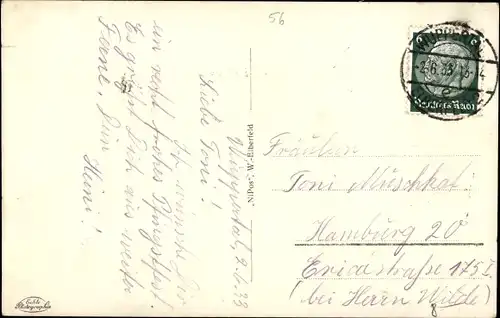 56
Wuppertal, 2.6.33
Liebe Toni!
Ich wünsche Dir
ein recht frohes Pfingstfest!
Es grüßt Dich aus weiter
Ferne, Dein
Heini!
„NiPus“, W.-Elberfeld
Deutsches Reich
6
-2.6.33
Fräulein
Toni Muschkat
Hamburg 20
Ericastraße 175 I
(bei Herrn Wilde)
Echte
Photographie